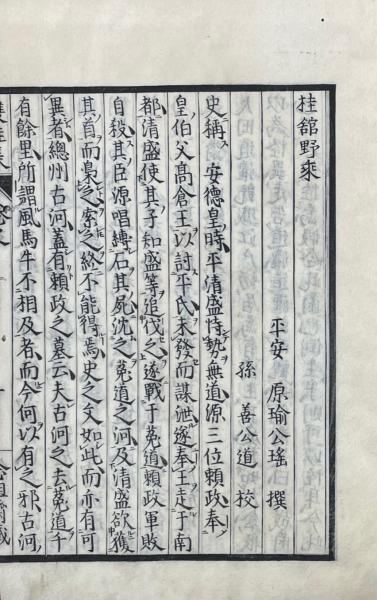 桂舘野乘
平安 原瑜公瑤 撰
孫 善公道 校
史稱 安德皇時平清盛恃勢無道源三位頼政奉
皇伯父髙倉王以討平氏未發而謀泄遂奉王走于南
都清盛使其子知盛等追伐之遂戰于莵道頼政軍敗
自殺其臣源唱縛石其屍沈之莵道之河及清盛欲獲
其首而梟之索之終不能得焉史之文如此而亦有可
異者總州古河蓋有頼政之墓云夫古河之去莵道千
有餘里所謂風馬牛不相及者而今何以有之邪古河